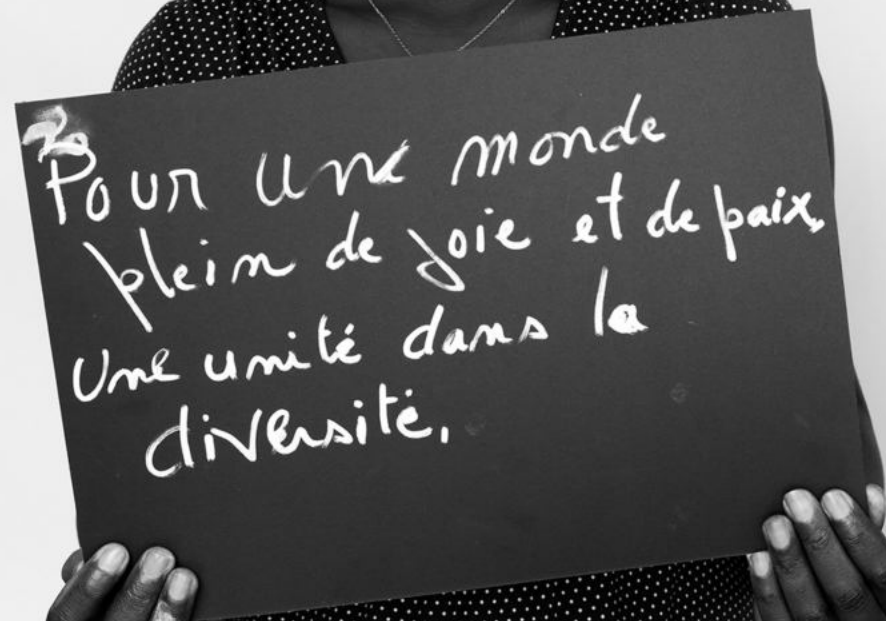 Pour une monde
plein de joie et de paix,
Une unité dans la
diversité.